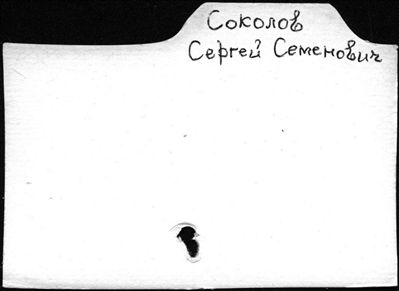 Соколов
Сергей Семенович